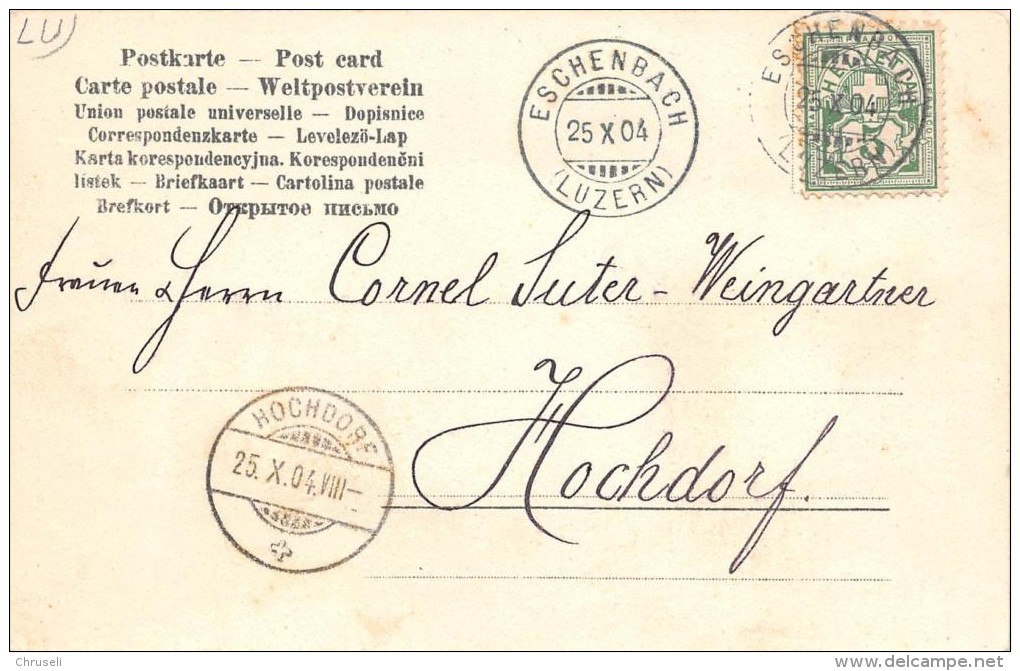 LU)
Postkarte — Post card
Carte postale — Weltpostverein
Union postale universelle — Dopisnice
Correspondenzkarte — Levelezö-Lap
Karta korespondencyjna. Korespondenčni
lístek — Briefkaart — Cartolina postale
Brefkort — Открытое письмо
ESCHENBACH
25 X 04
(LUZERN)
ESCHENBACH
25 X 04
(LUZERN)
HELVETIA
5
Frauen & Herrn Cornel Suter-Weingartner
Hochdorf.
HOCHDORF
25. X. 04. VIII—
Chruseli
delcampe.net